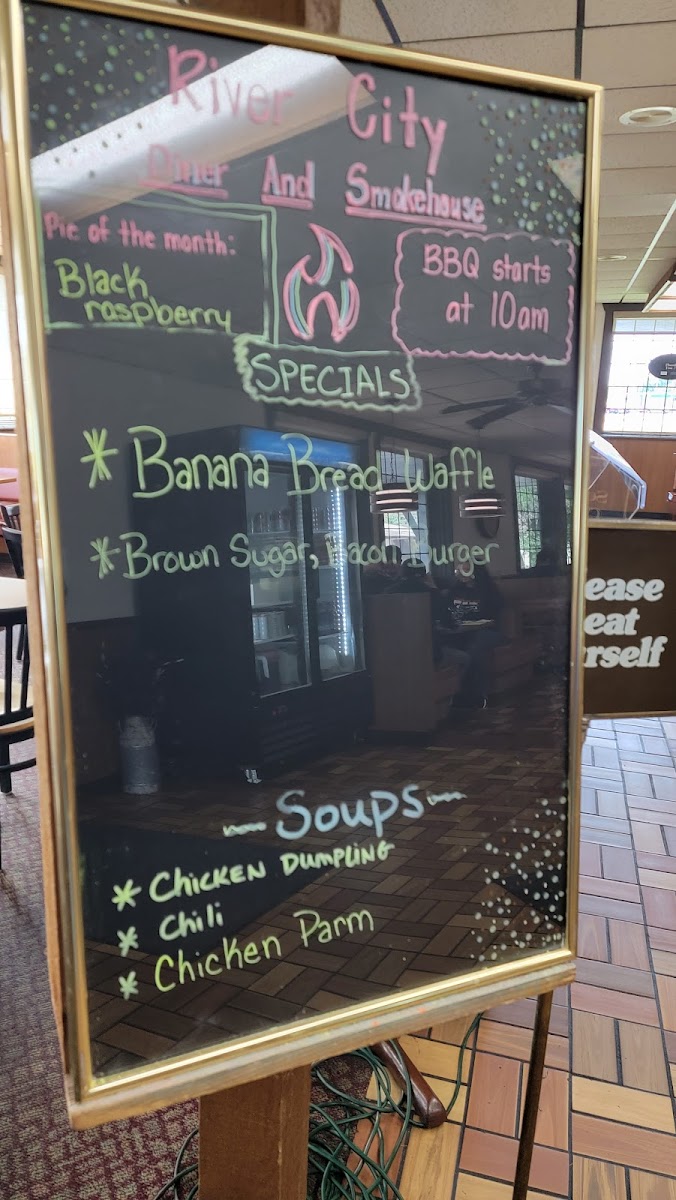 River City
Diner And Smokehouse
Pie of the month:
Black
raspberry
BBQ starts
at 10am
SPECIALS
* Banana Bread Waffle
* Brown Sugar, Bacon Burger
Soups
* Chicken Dumpling
* Chili
* Chicken Parm
ease
eat
rself